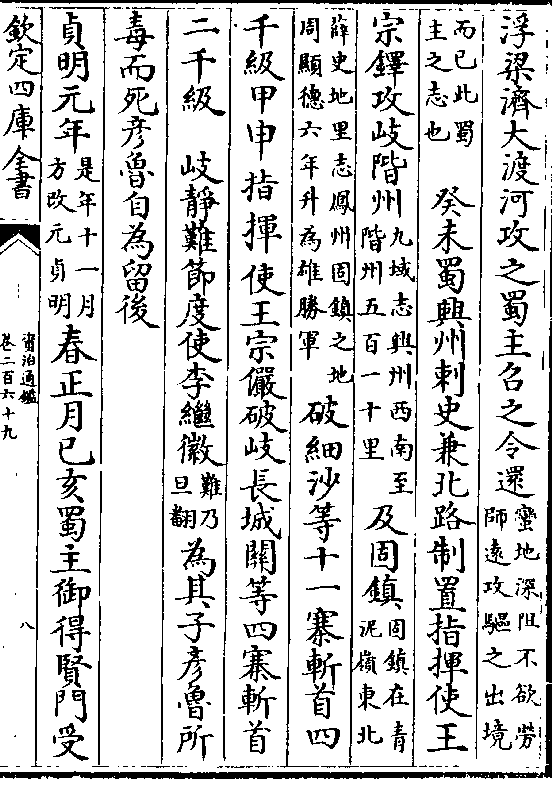 浮梁濟大渡河攻之蜀主召之令還蠻地深阻不欲勞師遠攻驅之出境
而已此蜀主之志也　癸未蜀興州刺史兼北路制置指揮使王
宗鐸攻岐階州九域志興州西南至階州五百一十里及固鎮固鎮在青泥嶺東北
薛史地里志鳳州固鎮之地周顯德六年升為雄勝軍破細沙等十一寨斬首四
千級甲申指揮使王宗儼破岐長城關等四寨斬首
二千級　岐靜難節度使李繼徽難乃旦翻為其子彥魯所
毒而死彥魯自為留後
貞明元年是年十一月方改元貞明春正月己亥蜀主御得賢門受
欽定四庫全書
資治通鑑
卷二百六十九
八